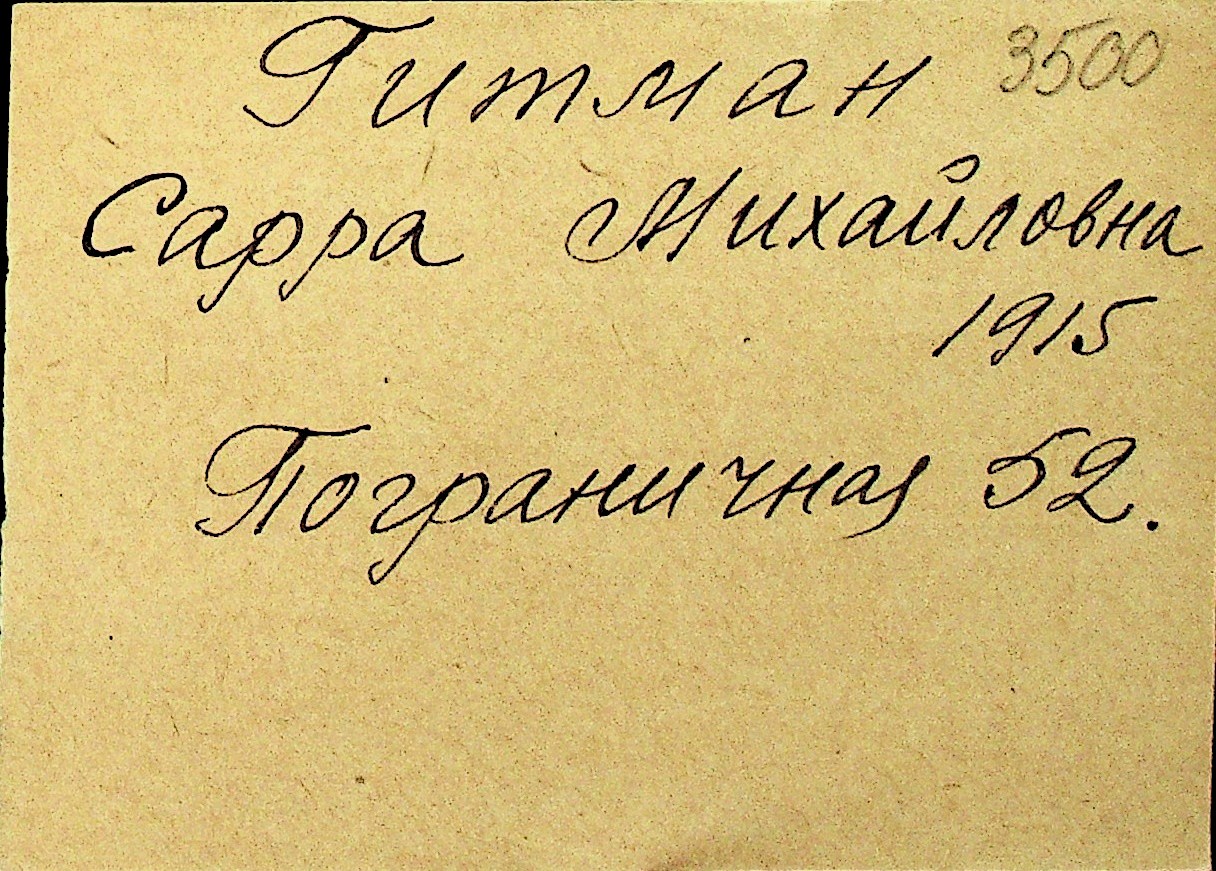 Гитман 3500
Сарра Михайловна
1915
Пограничная 52.